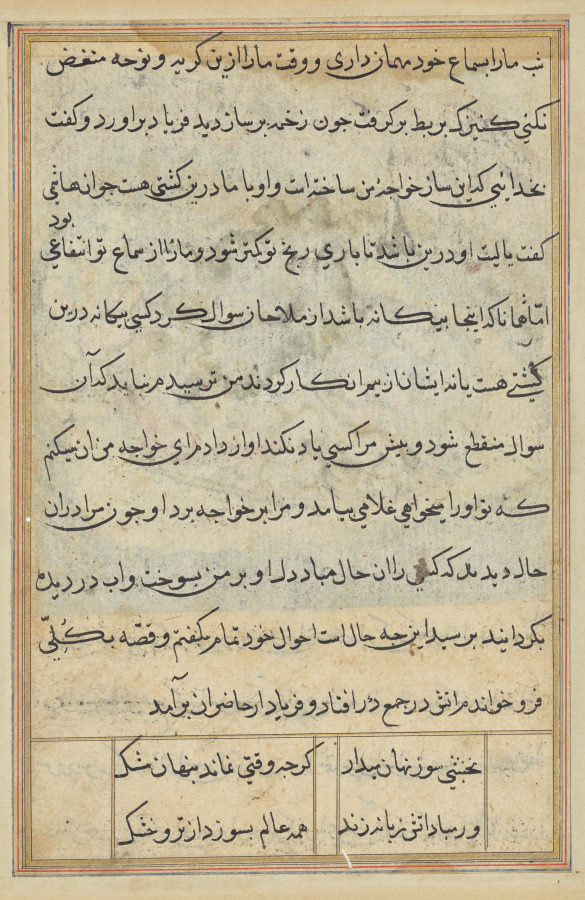 شب ما را بسماع خود مهمان داری و وقت ما را ازین کریه و نوحه منغض
نکنی کنیزک بربط برکرفت جون زخمه بر ساز دید فریاد براورد و کفت
بخدائی که این ساز خواجهٔ من ساخته است و او با ما درین کشتی هست جوان هاشمی
کفت یا لیت او درین باشد تا باری رنج تو کمتر شود و ما را از سماع تو انتفاعی بود
امّا همانا که اینجا بیکانه باشد از ملاحان سوال کرد کسی بیکانه درین
کشتی هست یا نه ایشان از بیم انکار کردند من ترسیدم نباید که آن
سوال منقطع شود و بیش مرا کسی یاد نکند اواز دادم ای خواجه من آن مسکینم
که تو او را میخواهی غلامی بیامد و مرا بر خواجه برد او جون مرا دران
حال دید که کسی را ان حال مباد دل او بر من بسوخت و اب در دیده
بکردانید برسید این جه حال است احوال خود تمام بکفتم و قصّه بکُلّی
فرو خواندم اتش در جمع در افتاد و فریاد از حاضران برآمد
نخشبی سوز نهان میدار
کرجه وقتی نماند بنهان مشک
ور مبادا تش زبانه زند
همه عالم بسوزد از تر و خشک